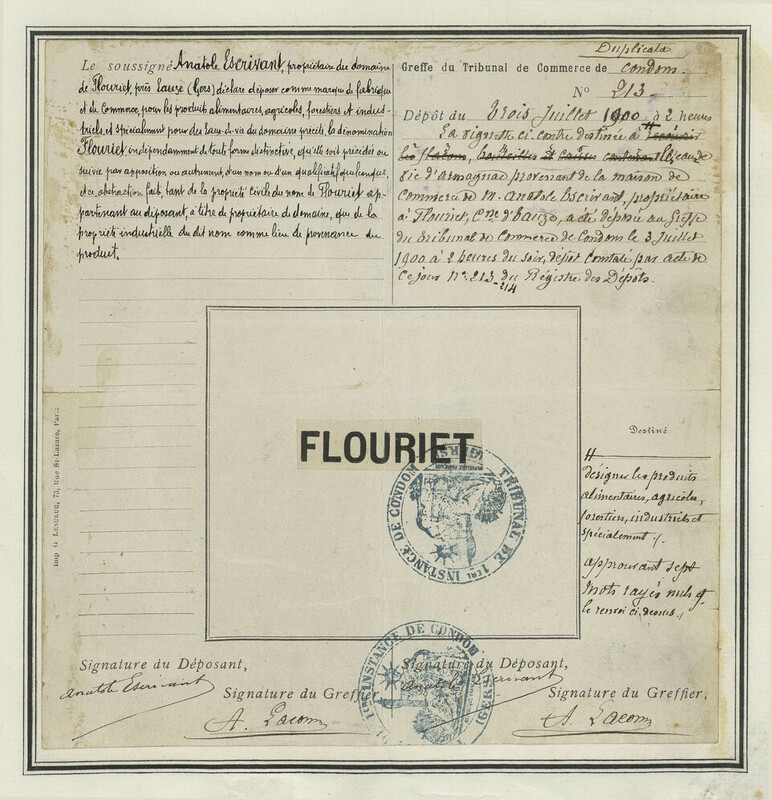 Le soussigné Anatole Escrivant, propriétaire du domaine
de Flouriet, près Eauze (Gers) déclare déposer comme marque de fabrique
et de Commerce, pour les produits alimentaires, agricoles, forestiers et indus-
triels, et spécialement pour des Eaux-de-vie du domaine précité, la dénomination
Flouriet indépendamment de tout forme distinctive, qu'elle soit précédée ou
suivie par apposition ou autrement, d'un nom ou d'un qualificatif quelconque,
et ce, abstraction faite, tant de la propriété civile du nom de Flouriet ap-
partenant au déposant, à titre de propriétaire du domaine, que de la
propriété industrielle du dit nom comme lieu de provenance du
produit.
Duplicata
Greffe du Tribunal de Commerce de Condom
No 213
Dépôt du trois Juillet 1900 à 2 heures
La vignette ci-contre destinée à
les flacons, bouteilles et caisses eau de
vie d'armagnac provenant de la maison de
Commerce de M. Anatole Escrivant, propriétaire
à Flouriet, Cne d'Eauze, a été déposée au Greffe
du Tribunal de Commerce de Condom le 3 Juillet
1900 à 2 heures du soir, dépôt constaté par acte de
ce jour No 213 du Régistre des Dépôts.
214
FLOURIET
TRIBUNAL DE 1ere INSTANCE DE CONDOM (GERS)
Imp. G. LESUEUR, 75, Rue St-Lazare, Paris
Destiné
désigner les produits
alimentaires, agricoles,
forestiers, industriels et
spécialement
approuvant sept
mots rayés nuls et
le renvoi ci-dessus
Signature du Déposant,
Anatole Escrivant
Signature du Greffier,
A. Lacom
Signature du Déposant,
Anatole Escrivant
Signature du Greffier,
A. Lacom
TRIBUNAL DE 1ere INSTANCE DE CONDOM (GERS)